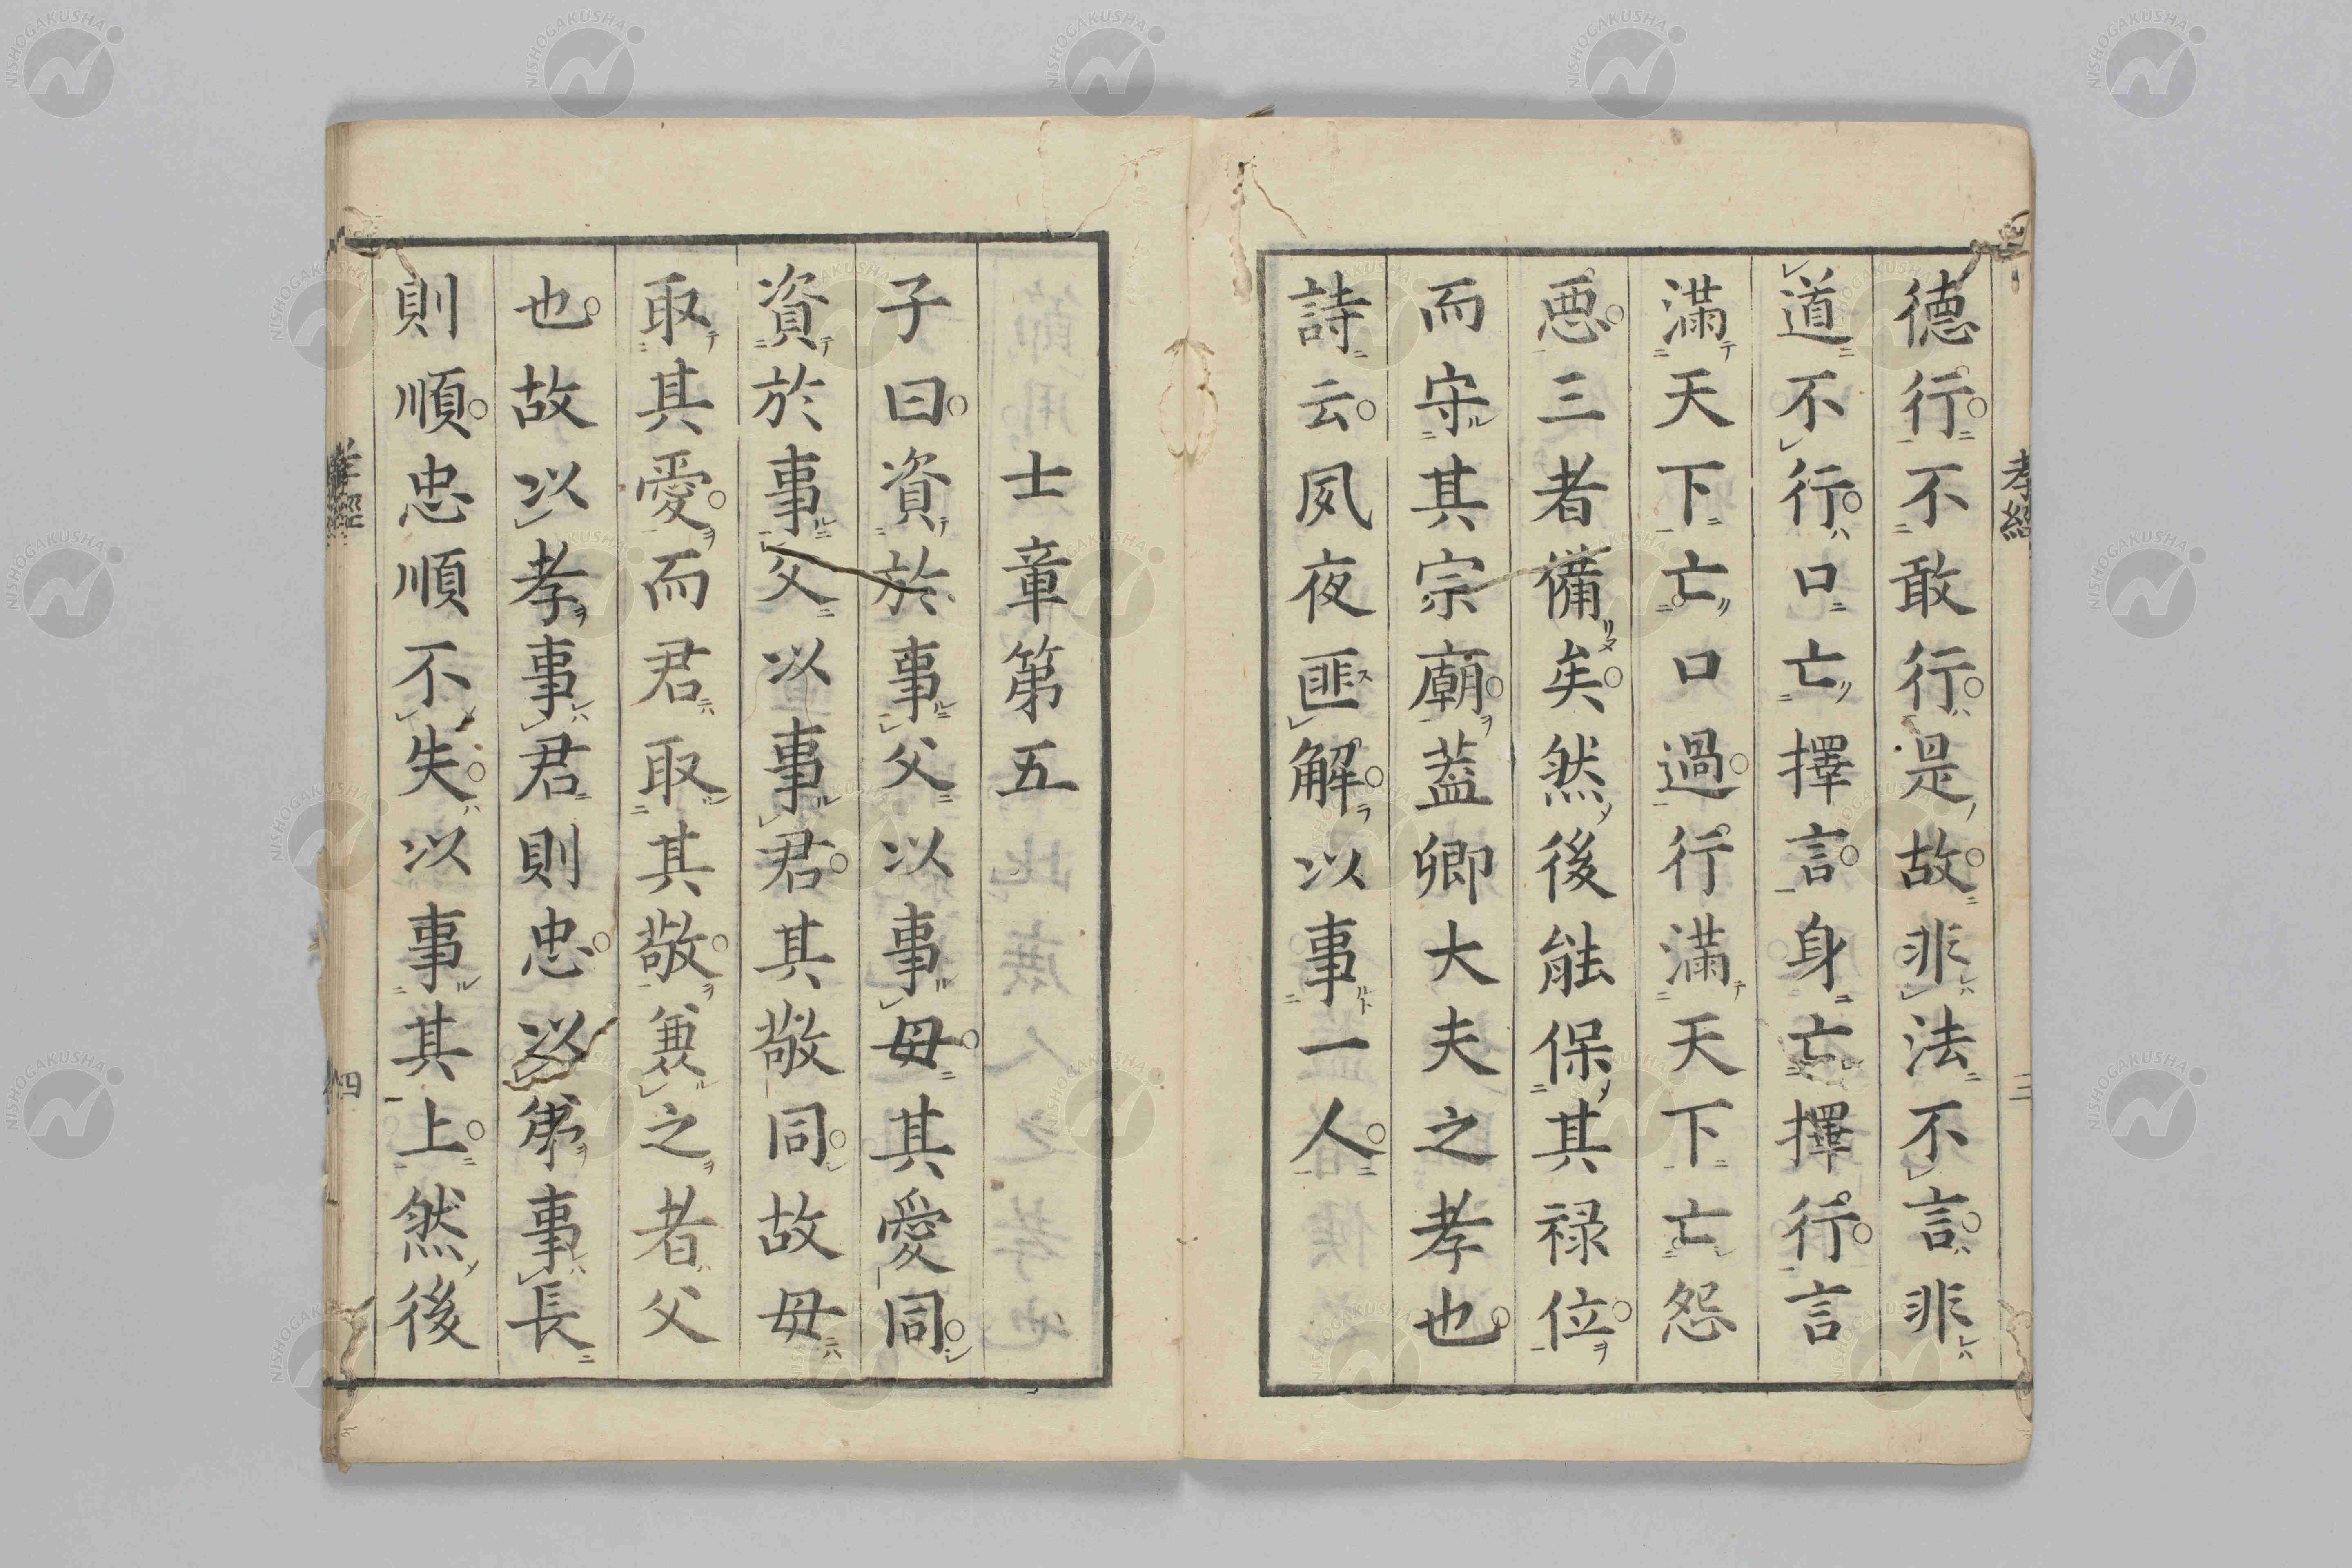 德行不敢行是故非法不言非
道不行口亡擇言身亡擇行言
滿天下亡口過行滿天下亡怨
惡三者備矣然後能保其祿位
而守其宗廟蓋卿大夫之孝也
詩云夙夜匪解以事一人
孝經
三
士章第五
子曰資於事父以事母其愛同
資於事父以事君其敬同故母
取其愛而君取其敬兼之者父
也故以孝事君則忠以弟事長
則順忠順不失以事其上然後
孝經
四